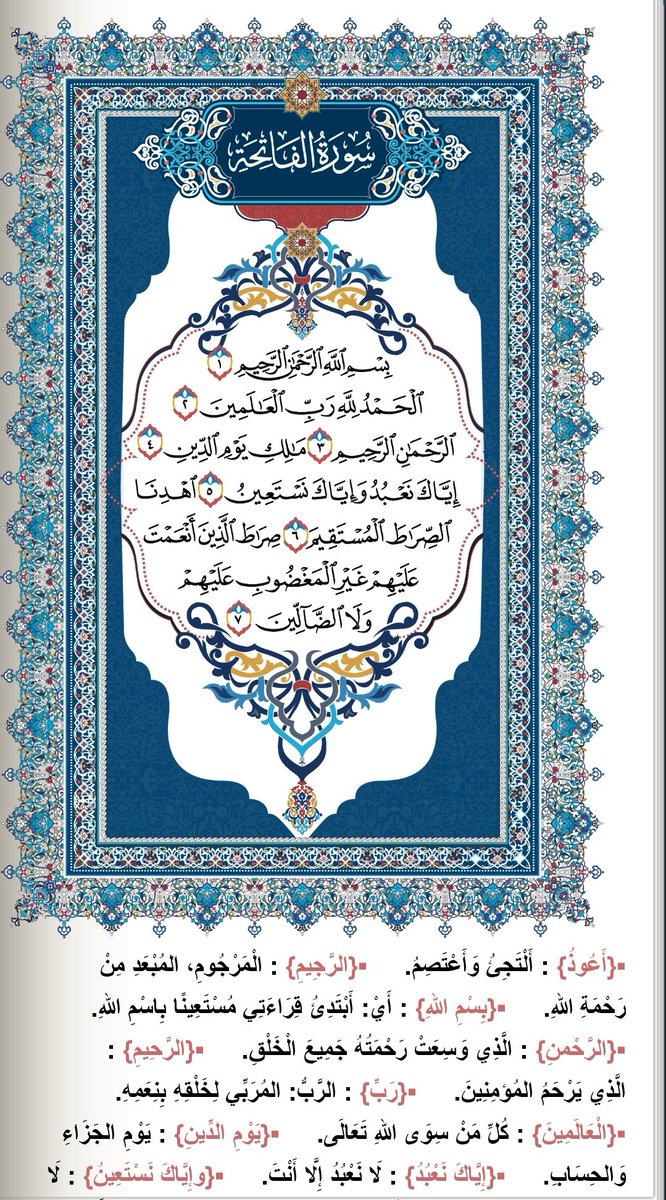 سُورَةُ الْفَاتِحَةِ
بِسْمِ ٱللَّهِ ٱلرَّحْمَٰنِ ٱلرَّحِيمِ ١
ٱلْحَمْدُ لِلَّهِ رَبِّ ٱلْعَٰلَمِينَ ٢
ٱلرَّحْمَٰنِ ٱلرَّحِيمِ ٣ مَٰلِكِ يَوْمِ ٱلدِّينِ ٤
إِيَّاكَ نَعْبُدُ وَإِيَّاكَ نَسْتَعِينُ ٥ ٱهْدِنَا
ٱلصِّرَٰطَ ٱلْمُسْتَقِيمَ ٦ صِرَٰطَ ٱلَّذِينَ أَنْعَمْتَ
عَلَيْهِمْ غَيْرِ ٱلْمَغْضُوبِ عَلَيْهِمْ
وَلَا ٱلضَّآلِّينَ ٧
▪{أَعُوذُ} : أَلْتَجِئُ وَأَعْتَصِمُ. ▪{الرَّجِيمِ} : الْمَرْجُومِ، المُبْعَدِ مِنْ
رَحْمَةِ اللهِ. ▪{بِسْمِ اللهِ} : أَيْ: أَبْتَدِئُ قِرَاءَتِي مُسْتَعِينًا بِاسْمِ اللهِ.
▪{الرَّحْمنِ} : الَّذِي وَسِعَتْ رَحْمَتُهُ جَمِيعَ الْخَلْقِ. ▪{الرَّحِيمِ} :
الَّذِي يَرْحَمُ المُؤمِنِينَ. ▪{رَبِّ} : الرَّبُّ: المُرَبِّي لِخَلْقِهِ بِنِعَمِهِ.
▪{الْعَالَمِينَ} : كُلِّ مَنْ سِوَى اللهِ تَعَالَى. ▪{يَوْمِ الدِّينِ} : يَوْمِ الجَزَاءِ
وَالحِسَابِ. ▪{إِيَّاكَ نَعْبُدُ} : لَا نَعْبُدُ إِلَّا أَنْتَ. ▪{وإِيَّاكَ نَسْتَعِينُ} : لَا